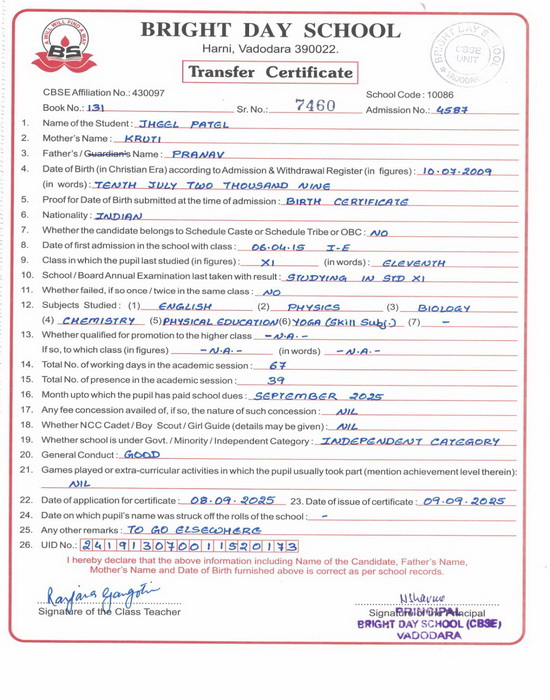 A WILL WILL FIND A WAY
BS
BRIGHT DAY SCHOOL
Harni, Vadodara 390022.
Transfer Certificate
BRIGHT DAY S
CBSE
UNIT
VADODARA
CBSE Affiliation No.: 430097 School Code : 10086
Book No.: 131 Sr. No.: 7460 Admission No.: 4587
1. Name of the Student : JHEEL PATEL
2. Mother's Name : KRUTI
3. Father's / Guardian's Name : PRANAV
4. Date of Birth (in Christian Era) according to Admission & Withdrawal Register (in figures) : 10.07.2009
(in words) : TENTH JULY TWO THOUSAND NINE
5. Proof for Date of Birth submitted at the time of admission : BIRTH CERTIFICATE
6. Nationality : INDIAN
7. Whether the candidate belongs to Schedule Caste or Schedule Tribe or OBC : NO
8. Date of first admission in the school with class : 06.04.15 I-E
9. Class in which the pupil last studied (in figures) : XI (in words) : ELEVENTH
10. School / Board Annual Examination last taken with result : STUDYING IN STD XI
11. Whether failed, if so once / twice in the same class : NO
12. Subjects Studied : (1) ENGLISH (2) PHYSICS (3) BIOLOGY
(4) CHEMISTRY (5) PHYSICAL EDUCATION (6) YOGA (Skill Subj.) (7) -
13. Whether qualified for promotion to the higher class -N.A.-
If so, to which class (in figures) -N.A.- (in words) -N.A.-
14. Total No. of working days in the academic session : 67
15. Total No. of presence in the academic session : 39
16. Month upto which the pupil has paid school dues : SEPTEMBER 2025
17. Any fee concession availed of, if so, the nature of such concession : NIL
18. Whether NCC Cadet / Boy Scout / Girl Guide (details may be given) : NIL
19. Whether school is under Govt. / Minority / Independent Category : INDEPENDENT CATEGORY
20. General Conduct : GOOD
21. Games played or extra-curricular activities in which the pupil usually took part (mention achievement level therein):
NIL
22. Date of application for certificate : 08.09.2025 23. Date of issue of certificate : 09.09.2025
24. Date on which pupil's name was struck off the rolls of the school : -
25. Any other remarks : TO GO ELSEWHERE
26. UID No.: 241913070011520173
I hereby declare that the above information including Name of the Candidate, Father's Name,
Mother's Name and Date of Birth furnished above is correct as per school records.
Signature of the Class Teacher Signature of the Principal
PRINCIPAL
BRIGHT DAY SCHOOL (CBSE)
VADODARA